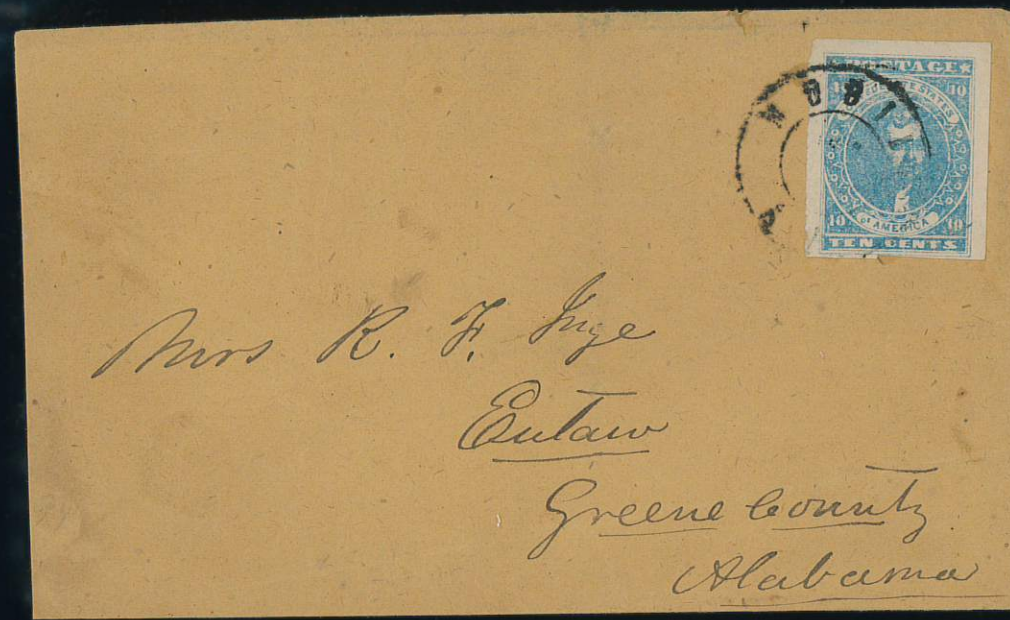 POSTAGE
10 10
CONFEDERATE STATES
OF AMERICA
10 10
TEN CENTS
MOBIL
Mrs R. F. Inge
Eutaw
Greene County
Alabama